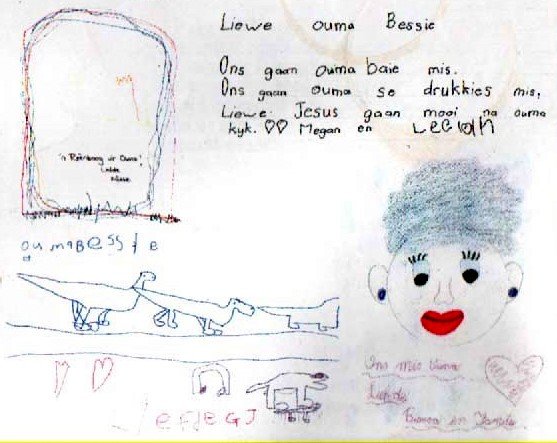 Liewe ouma Bessie
Ons gaan ouma baie mis.
Ons gaan ouma se drukkies mis,
Liewe Jesus gaan mooi na ouma
kyk. ♡♡ Megan en
'n Reënboog vir Ouma!
Liefde
oumaBESSIE
Ons mis Ouma
Liefde
en